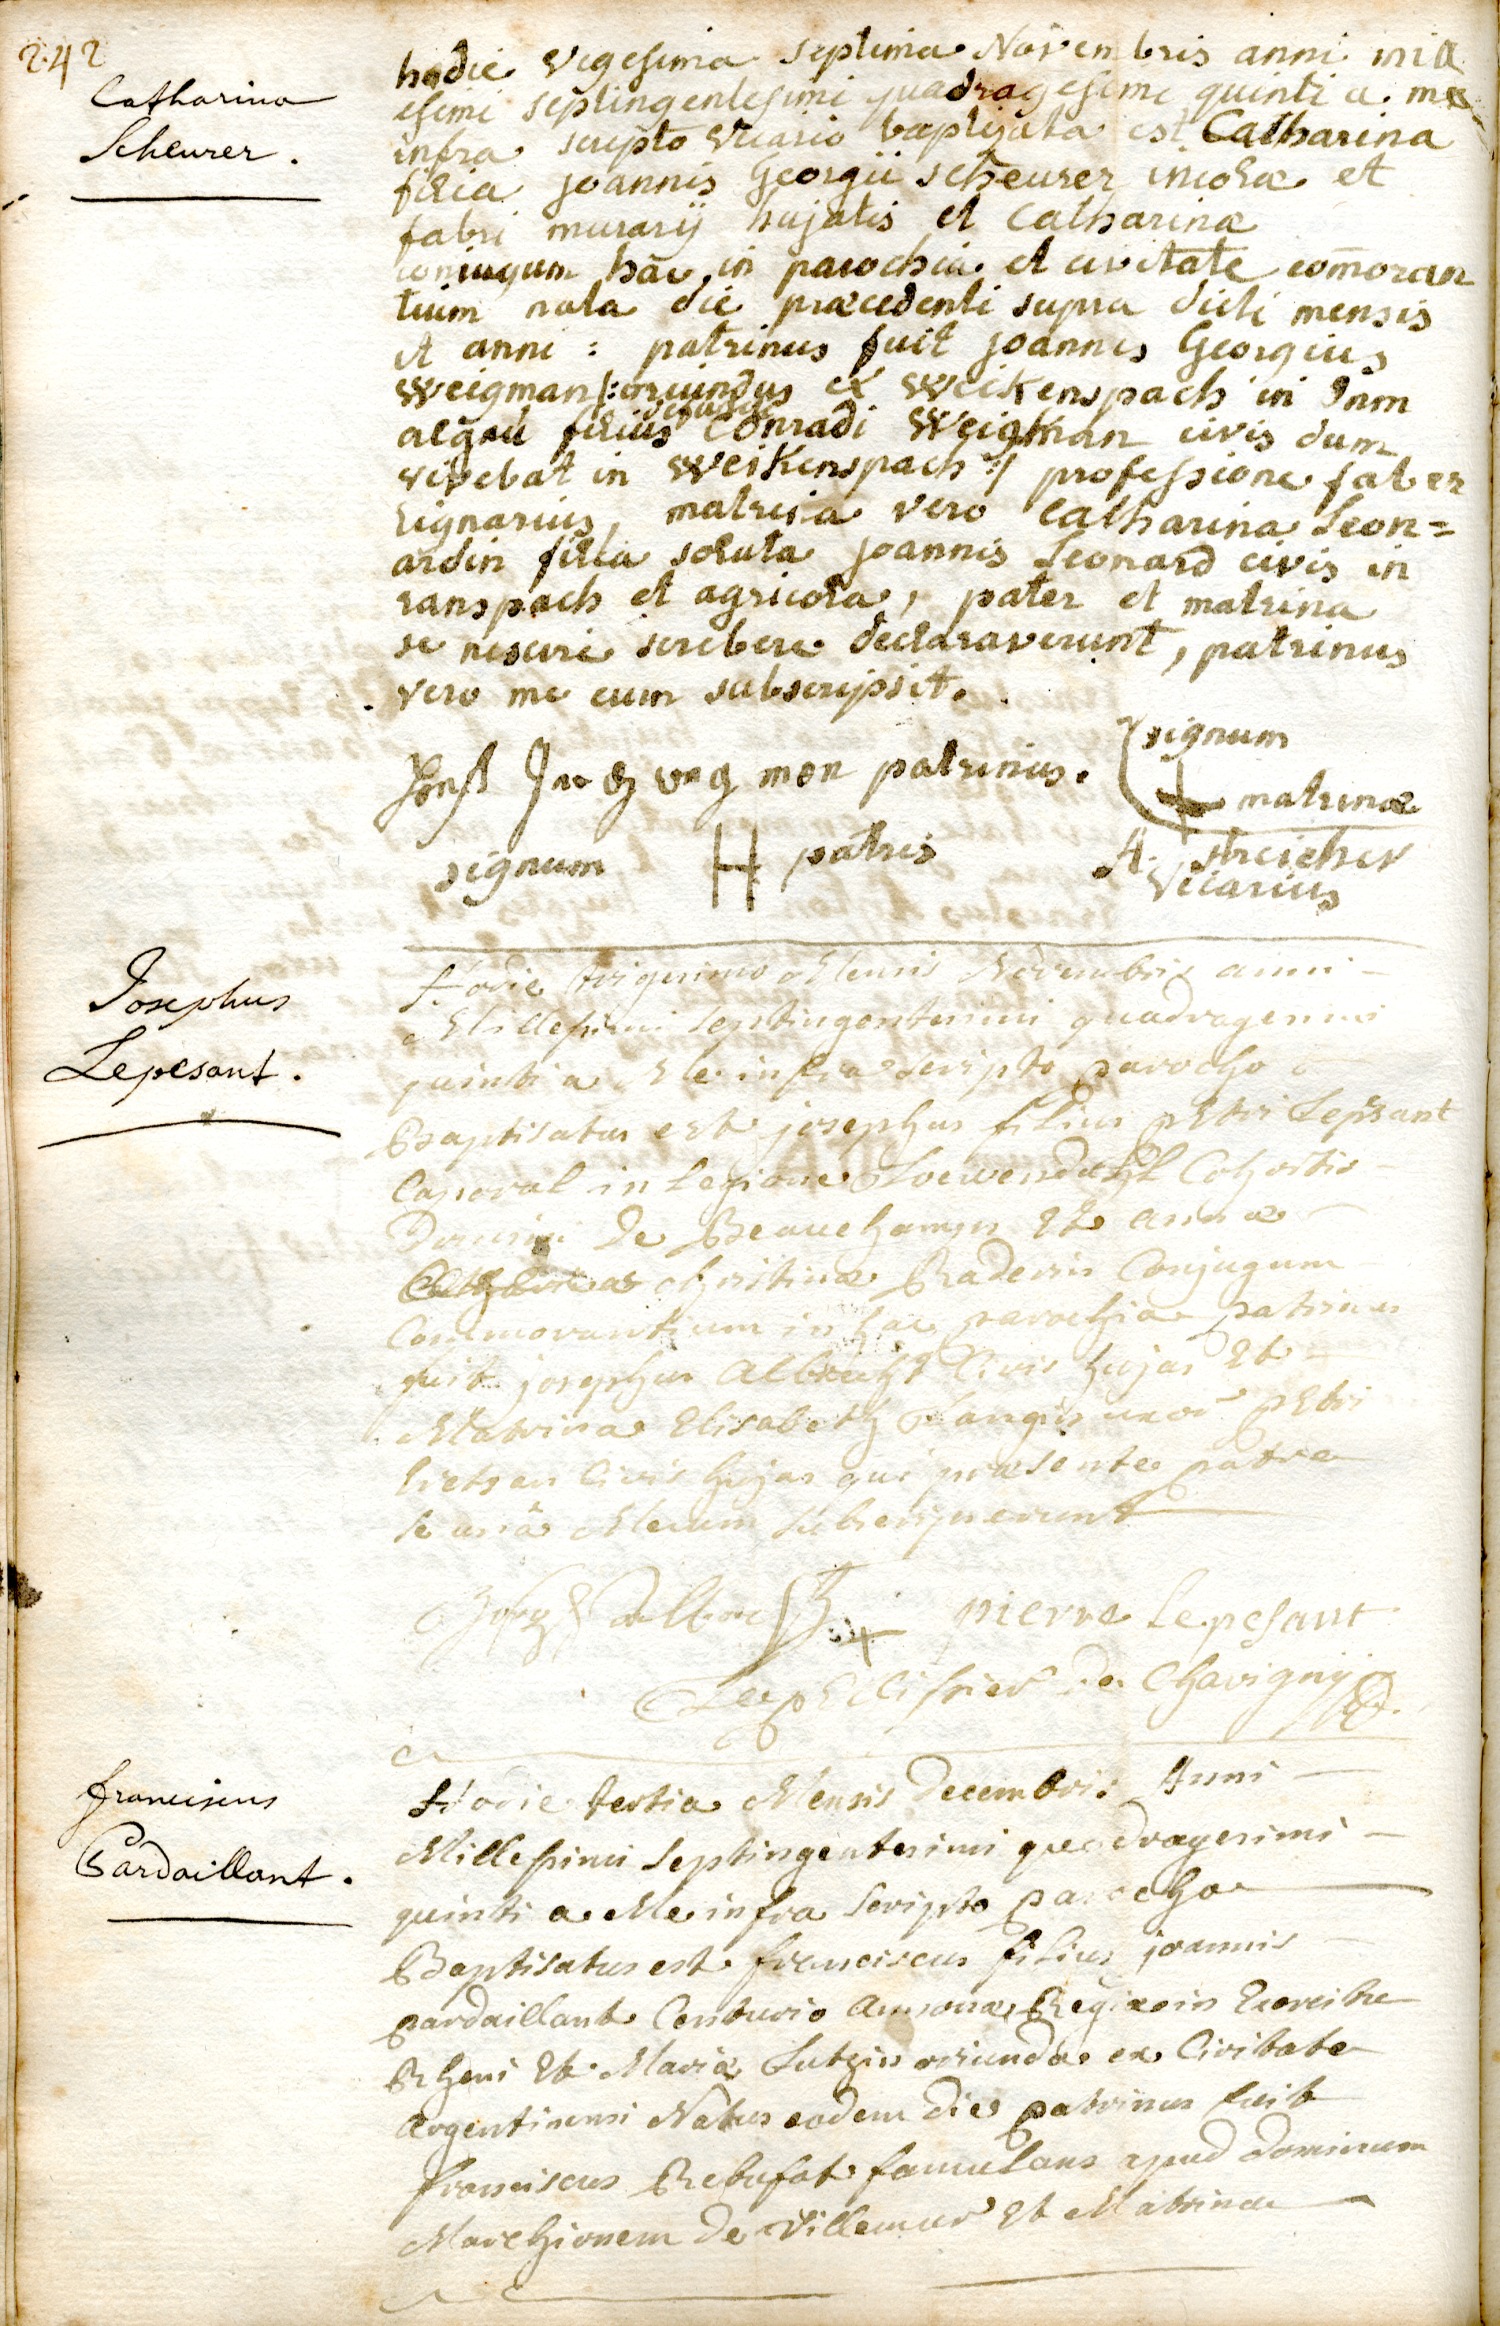 242
Catharina
Scheurer.
hodie vigesima septima Novembris anni mill
esimi septingentesimi quadragesimi quinti a me
infra scripto vicario baptizata est Catharina
filia joannis Georgii scheurer incolæ et
fabri murarij hujatis et Catharinæ
coniugum hac in parochia et civitate com̄oran
tium nata die præcedenti supra dicti mensis
et anni : patrinus fuit joannes Georgius
Weigman /: oriundus ex Weikenspach in
algau filius Conradi Weigman civis dum
vivebat in Weikenspach :/ professione faber
lignarius, matrina vero Catharina Leon=
ardin filia soluta joannis Leonard civis in
ranspach et agricola, pater et matrina
se nescire scribere declaraverunt, patrinus
vero me cum subscripsit.
patrinus.
signum
matrinæ
signum H patris
A. streicher
vicarius
Josephus
Lepesant.
Hodie trigesimo Mensis Novembris anni
Millesimi septingentesimi quadragesimi
quinti a Me infra scripto parocho
Baptisatus est josephus filius petri Lepesant
Caporal in legione Loewendahl Cohortis
Domini de Beauchamps Et anna
christina Raderin Conjugum
Commorantium in hac parochia patrinus
fuit josephus Albrecht Civis hujas Et
Matrina Elisabeth Langin uxor petri
civis hujas qui præsente patre
se unâ Mecum subscripserunt
pierre Lepesant
Lepellissier de Chavigny
franciscus
Pardaillant.
Hodie tertia Mensis Decembris Anni
Millesimi Septingentesimi quadragesimi
quinti a Me infra scripto parocho
Baptisatus est franciscus filius joannis
pardaillant Centurio annonæ Regiæ in Exercitu
Rheni Et Maria Lutzin oriunda ex Civitate
argentinensi Natus eodem die patrinus fuit
franciscus Rebufat famulans apud dominum
Marchionem de Villemur Et Matrina